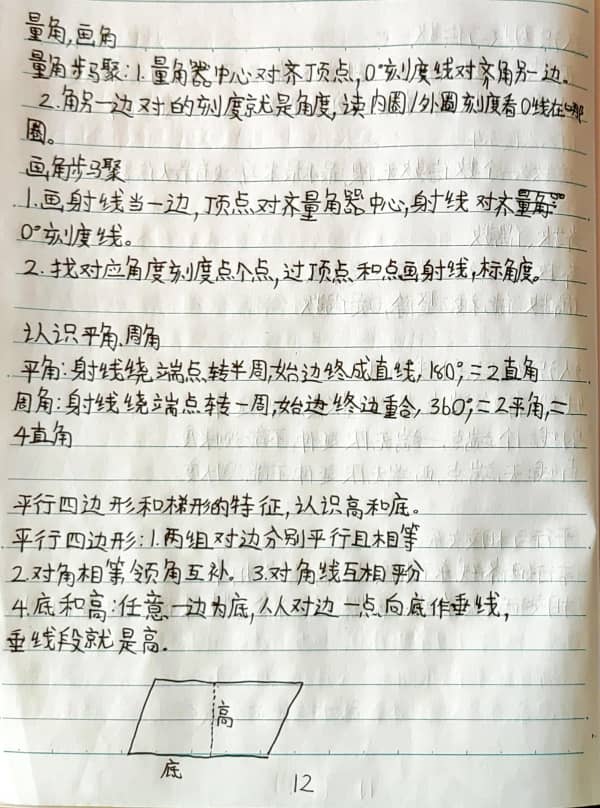 量角,画角
量角步骤:1.量角器中心对齐顶点,0°刻度线对齐角另一边。
2.角另一边对的刻度就是角度,读内圈/外圈刻度看0线在哪
圈。
画角步骤
1.画射线当一边,顶点对齐量角器中心,射线对齐量角器
0°刻度线。
2.找对应角度刻度点个点,过顶点和点画射线,标角度。
认识平角、周角
平角:射线绕端点转半周,始边终成直线,180°,=2直角
周角:射线绕端点转一周,始边终边重合,360°,=2平角,=
4直角
平行四边形和梯形的特征,认识高和底。
平行四边形:1.两组对边分别平行且相等
2.对角相等,领角互补。3.对角线互相平分
4.底和高:任意一边为底,从对边一点向底作垂线,
垂线段就是高.
高
底
12